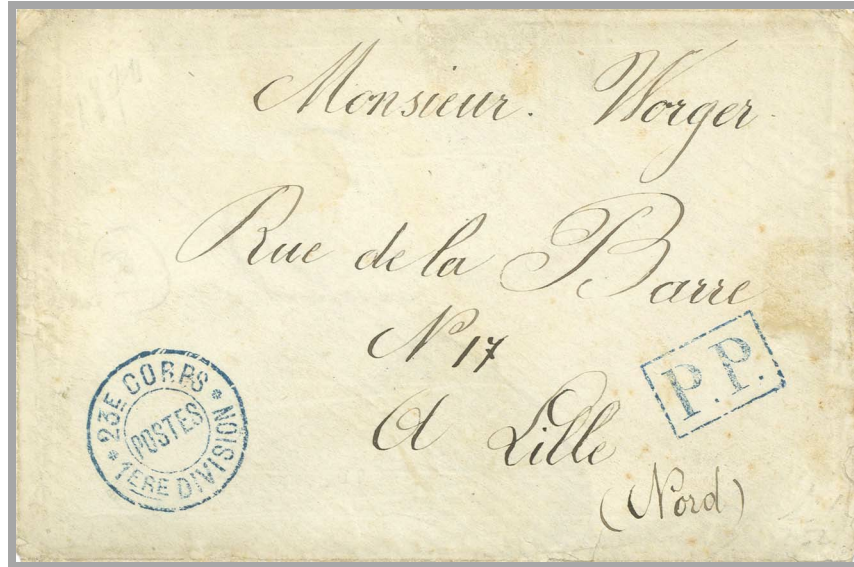 1870
Monsieur. Worger
Rue de la Barre
N° 17
A Lille
(Nord)
P.P.
* 23E CORPS *
POSTES
1ERE DIVISION